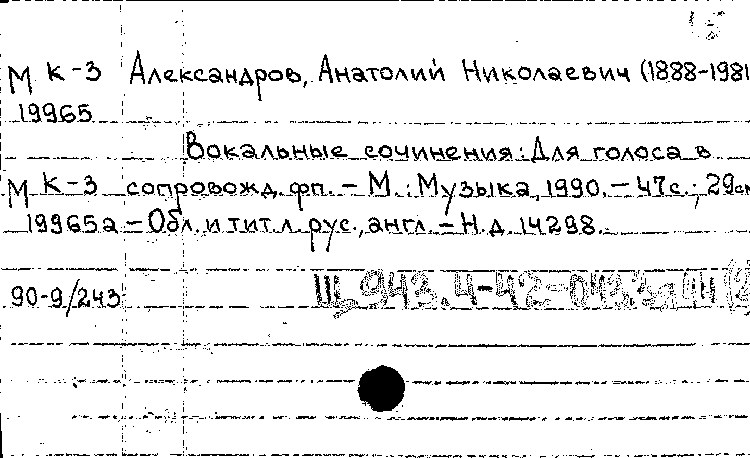 М К-3 Александров, Анатолий Николаевич (1888-1981
19965
Вокальные сочинения: Для голоса в
М К-3 сопровожд. фп. - М.: Музыка, 1990. - 47с.; 29см
19965а - Обл. и тит. л. рус., англ. - Н.д. 14298.
90-9/243 Щ 943.4-42-043.3я44